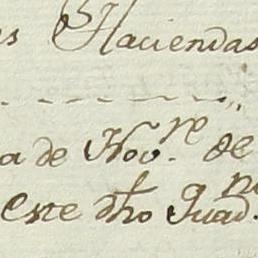 s Haciendas
a de Nov.re de
este dho Quad.no